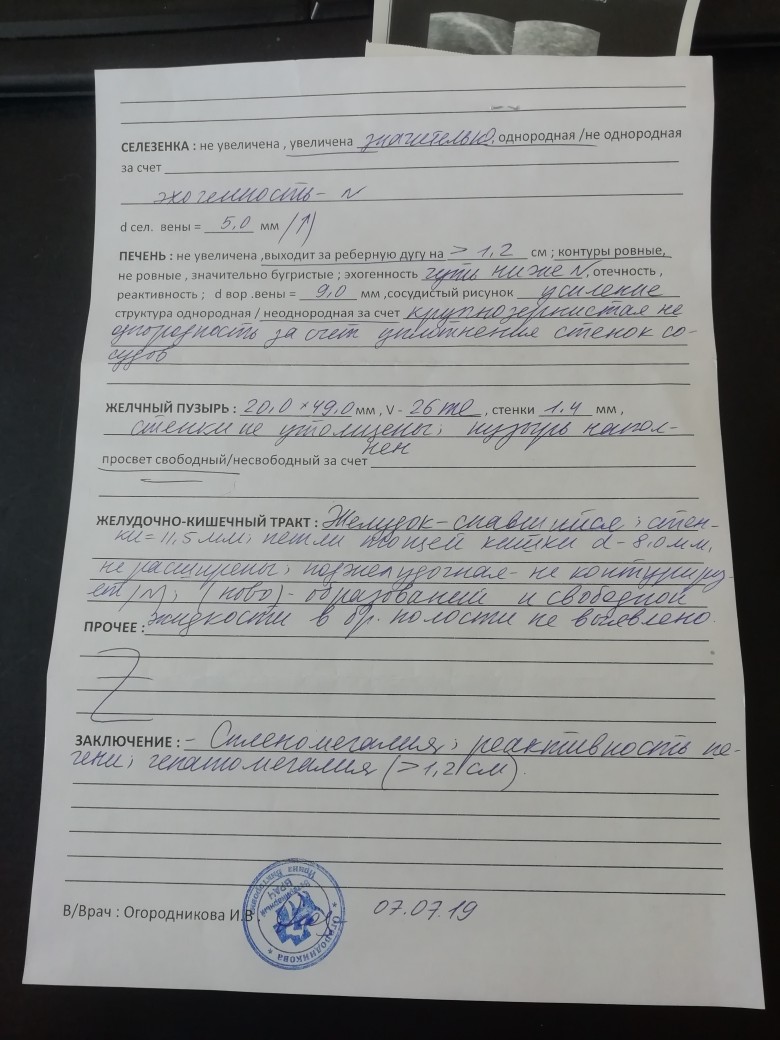 СЕЛЕЗЕНКА : не увеличена , увеличена значительно, однородная /не однородная
за счет
эхогенность - N
d сел. вены = 5,0 мм (↑)
ПЕЧЕНЬ : не увеличена ,выходит за реберную дугу на > 1,2 см ; контуры ровные,
не ровные , значительно бугристые ; эхогенность чуть ниже N, отечность ,
реактивность ; d вор .вены = 9,0 мм ,сосудистый рисунок усиление
структура однородная / неоднородная за счет крупнозернистая не
однородность за счет уплотнения стенок со-
судов
ЖЕЛЧНЫЙ ПУЗЫРЬ : 20,0 × 49,0 мм , V - 26 , стенки 1.4 мм ,
стенки не утолщены; пузырь напол-
нен
просвет свободный/несвободный за счет
ЖЕЛУДОЧНО-КИШЕЧНЫЙ ТРАКТ : Желудок - спавшийся; стен-
ки = 11,5 мм; петли тощей кишки d - 8,0 мм,
не расширены; поджелудочная - не контуриру-
ет /N/; (ново) - образований и свободной
ПРОЧЕЕ : жидкости в бр. полости не выявлено.
Z
ЗАКЛЮЧЕНИЕ : - Спленомегалия; реактивность пе-
чени; гепатомегалия (> 1,2 см).
В/Врач : Огородникова И.В.
07.07.19
Огородникова
ВРАЧ